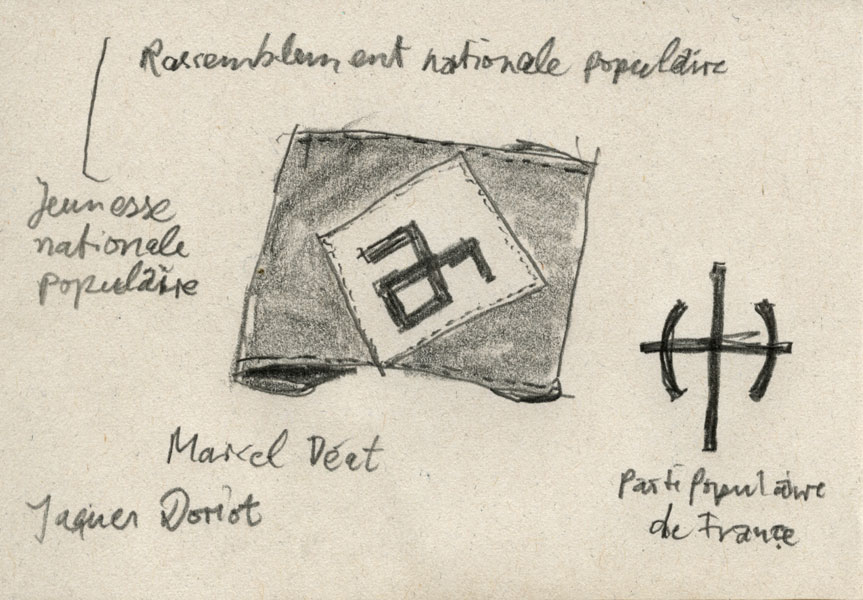 Rassemblement nationale populaire
Jeunesse
nationale
populaire
Marcel Déat
Jaques Doriot
Parti Populaire
de France